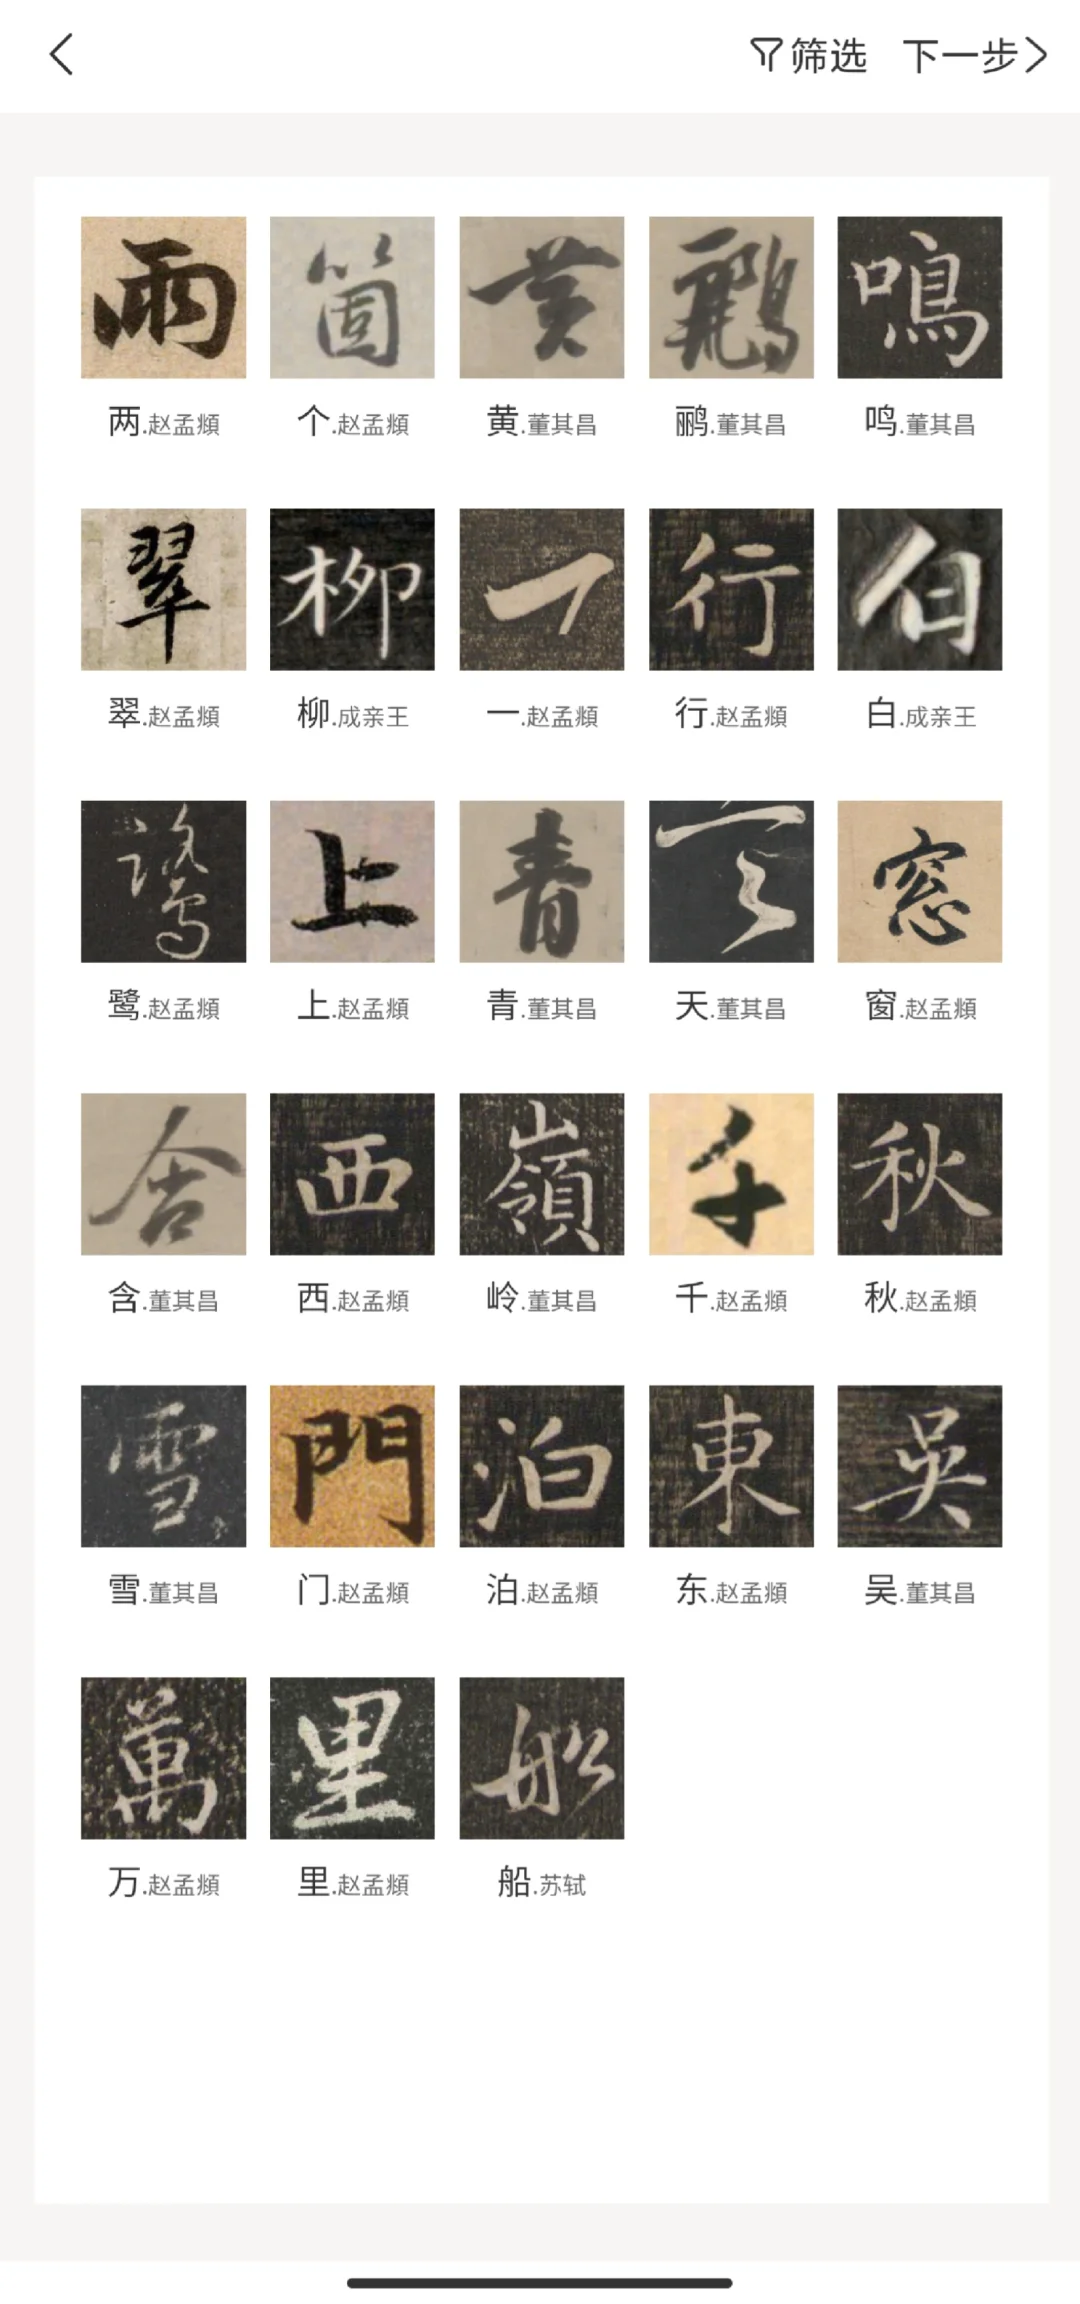 筛选 下一步
兩 箇 黄 鸝 鳴
两.赵孟頫 个.赵孟頫 黄.董其昌 鹂.董其昌 鸣.董其昌
翠 柳 一 行 白
翠.赵孟頫 柳.成亲王 一.赵孟頫 行.赵孟頫 白.成亲王
鷺 上 青 天 窓
鹭.赵孟頫 上.赵孟頫 青.董其昌 天.董其昌 窗.赵孟頫
含 西 嶺 千 秋
含.董其昌 西.赵孟頫 岭.董其昌 千.赵孟頫 秋.赵孟頫
雪 門 泊 東 吳
雪.董其昌 门.赵孟頫 泊.赵孟頫 东.赵孟頫 吴.董其昌
萬 里 船
万.赵孟頫 里.赵孟頫 船.苏轼